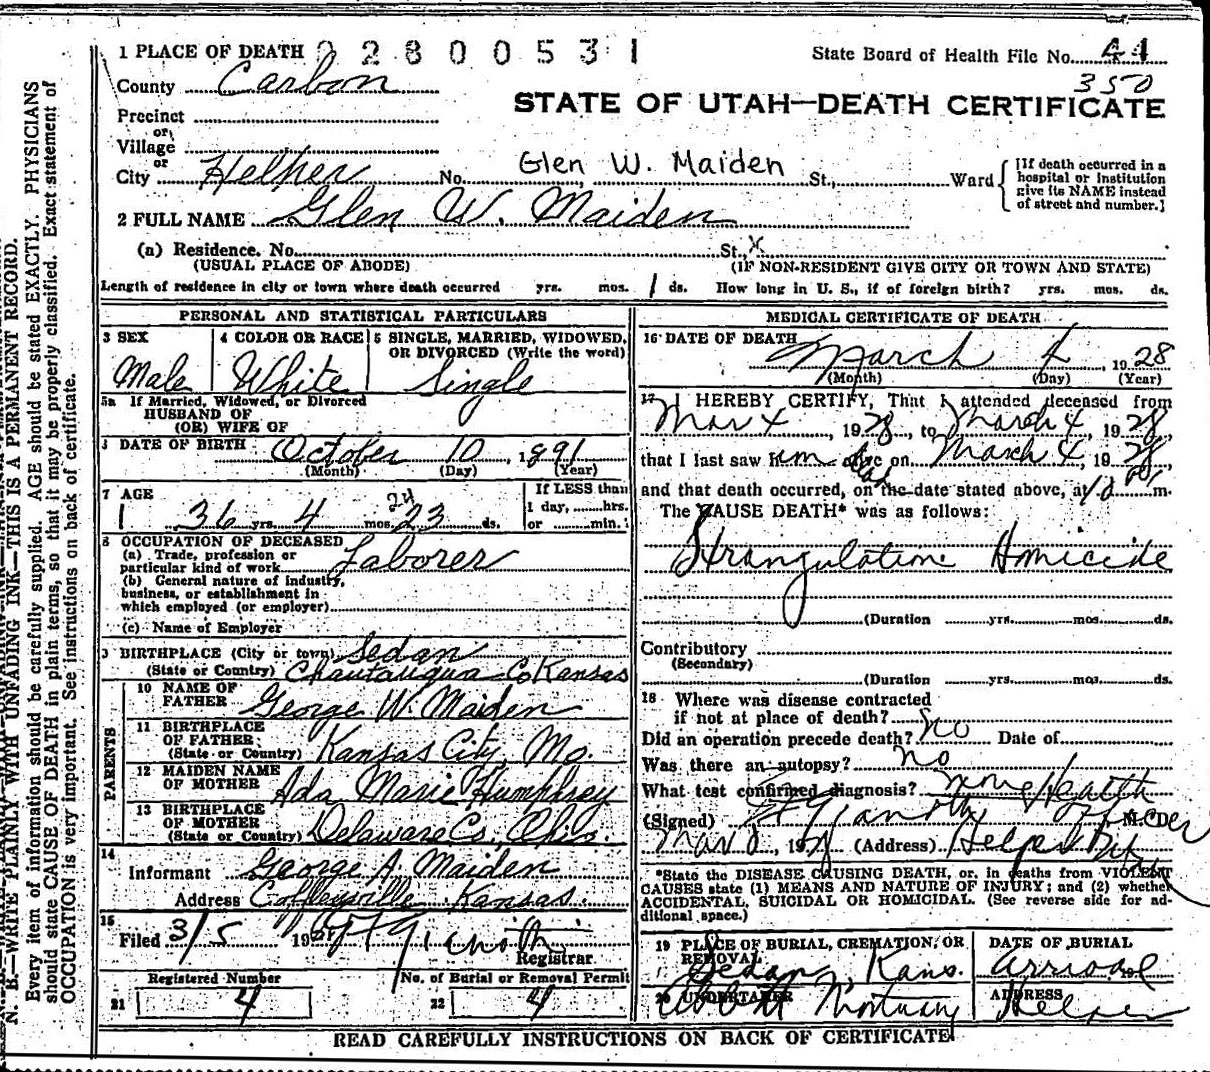 1 PLACE OF DEATH 9 2 8 0 0 5 3 1 State Board of Health File No. 44
County Carbon 350
STATE OF UTAH—DEATH CERTIFICATE
Precinct
or
Village
or
City Helper No. Glen W. Maiden St., Ward
[If death occurred in a
hospital or institution
give its NAME instead
of street and number.]
2 FULL NAME Glen W. Maiden
(a) Residence. No. St., X
(USUAL PLACE OF ABODE) (IF NON-RESIDENT GIVE CITY OR TOWN AND STATE)
Length of residence in city or town where death occurred yrs. mos. 1 ds. How long in U. S., if of foreign birth? yrs. mos. ds.
PERSONAL AND STATISTICAL PARTICULARS
3 SEX
Male
4 COLOR OR RACE
White
5 SINGLE, MARRIED, WIDOWED,
OR DIVORCED (Write the word)
Single
5a If Married, Widowed, or Divorced
HUSBAND OF
(OR) WIFE OF
DATE OF BIRTH October 10, 1891
(Month) (Day) (Year)
7 AGE
36 yrs. 4 mos. 23 ds.
24
If LESS than
1 day, hrs.
or min.
8 OCCUPATION OF DECEASED
(a) Trade, profession or
particular kind of work Laborer
(b) General nature of industry,
business, or establishment in
which employed (or employer)
(c) Name of Employer
9 BIRTHPLACE (City or town) Sedan
(State or Country) Chautauqua Co Kansas
PARENTS
10 NAME OF
FATHER George W. Maiden
11 BIRTHPLACE
OF FATHER
(State or Country) Kansas City, Mo.
12 MAIDEN NAME
OF MOTHER Ada Marie Humphrey
13 BIRTHPLACE
OF MOTHER
(State or Country) Delaware Co., Ohio.
14
Informant George A. Maiden
Address Coffeyville Kansas.
15
Filed 3/5 19
Registrar
Registered Number No. of Burial or Removal Permit
21 4 22 4
MEDICAL CERTIFICATE OF DEATH
16 DATE OF DEATH
March 4, 1928
(Month) (Day) (Year)
17 I HEREBY CERTIFY, That I attended deceased from
Mar 4, 1928, to March 4, 1928,
that I last saw him alive on March 4, 1928,
dead
and that death occurred, on the date stated above, at m.
The CAUSE DEATH* was as follows:
Strangulation Homicide
(Duration yrs. mos. ds.
Contributory
(Secondary)
(Duration yrs. mos. ds.
18 Where was disease contracted
if not at place of death?
Did an operation precede death? no Date of
Was there an autopsy? no
What test confirmed diagnosis? none Health
(Signed) M. D. Officer
Mar (Address) Helper Utah
*State the DISEASE CAUSING DEATH, or, in deaths from VIOLENT
CAUSES state (1) MEANS AND NATURE OF INJURY; and (2) whether
ACCIDENTAL, SUICIDAL OR HOMICIDAL. (See reverse side for ad-
ditional space.)
19 PLACE OF BURIAL, CREMATION, OR
REMOVAL
Sedan, Kans.
DATE OF BURIAL
arrival 19
20 UNDERTAKER
Mortuary
ADDRESS
Helper
READ CAREFULLY INSTRUCTIONS ON BACK OF CERTIFICATE
N. B.—WRITE PLAINLY WITH UNFADING INK—THIS IS A PERMANENT RECORD.
Every item of information should be carefully supplied. AGE should be stated EXACTLY. PHYSICIANS
should state CAUSE OF DEATH in plain terms, so that it may be properly classified. Exact statement of
OCCUPATION is very important. See instructions on back of certificate.